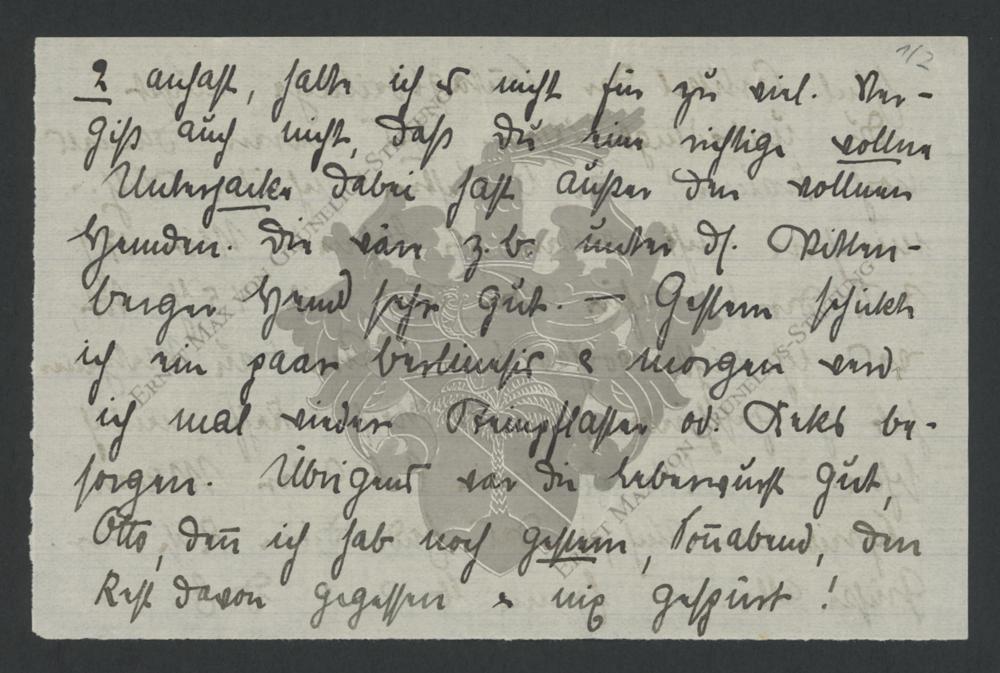 1/2
2 anhast, halte ich es nicht für zu viel. Ver-
giß auch nicht, daß du eine richtige wollne
Unterjacke dabei hast außer den wollnen
Hemden. Die wäre z. b. unter ds. Witten-
berger Hemd sehr gut. — Gestern schickte
ich ein paar & morgen werd
ich mal wieder Steinpflaster od. Keks be-
sorgen. Übrigens war die Leberwurst gut,
Otto, deñ ich hab noch gestern, Soñabend, den
Rest davon gegessen & nix gespürt!
ERNST MAX VON GRUNELIUS-STIFTUNG
ERNST MAX VON GRUNELIUS-STIFTUNG